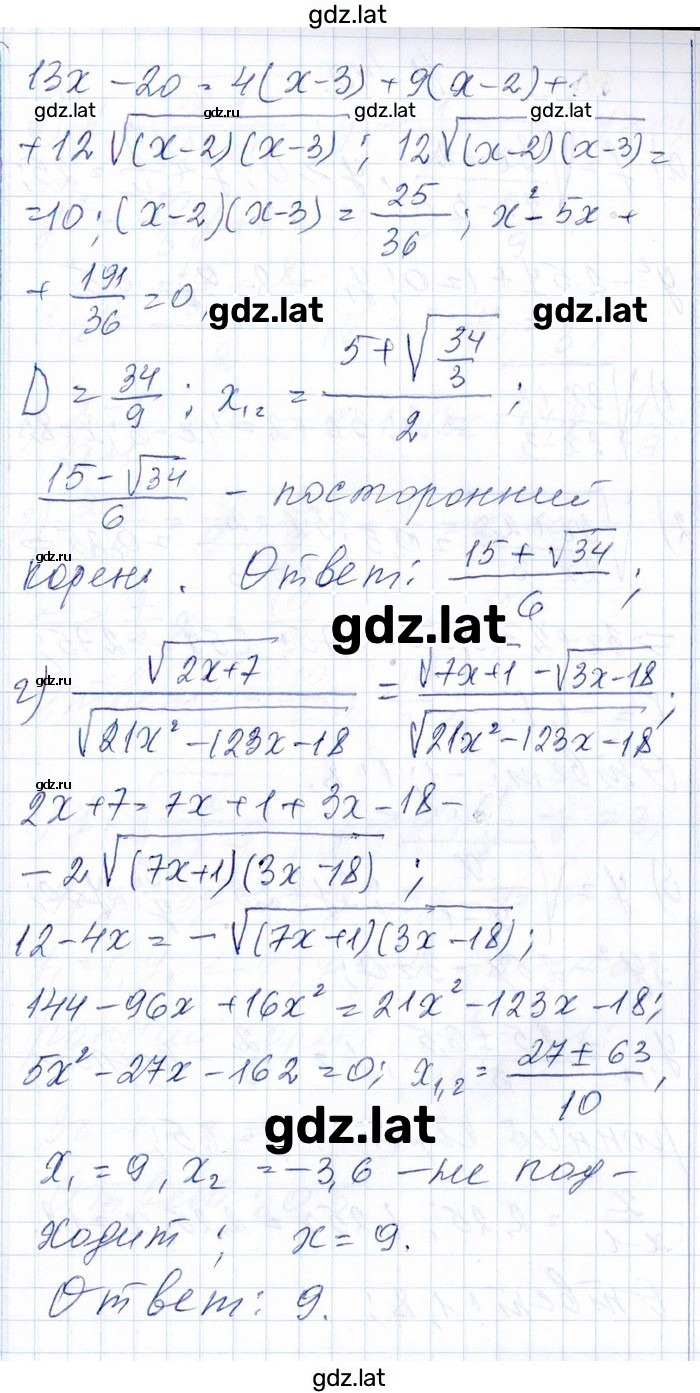 gdz.lat
13x - 20 = 4(x-3) + 9(x-2) +
gdz.lat gdz.ru gdz.lat gdz.lat
+ 12√((x-2)(x-3)); 12√((x-2)(x-3)) =
= 10; (x-2)(x-3) = 25/36; x² - 5x +
+ 191/36 = 0,
gdz.lat gdz.lat
D = 34/9; x₁,₂ = (5 + √(34/3))/2;
(15 - √34)/6 - посторонний
gdz.ru
корень. Ответ: (15 + √34)/6;
gdz.lat
gdz.ru
г) √(2x+7)/√(21x² - 123x - 18) = (√(7x+1) - √(3x-18))/√(21x² - 123x - 18);
gdz.ru
2x + 7 = 7x + 1 + 3x - 18 -
- 2√((7x+1)(3x-18));
12 - 4x = -√((7x+1)(3x-18));
144 - 96x + 16x² = 21x² - 123x - 18;
5x² - 27x - 162 = 0; x₁,₂ = (27 ± 63)/10,
gdz.lat
x₁ = 9, x₂ = -3,6 - не под-
ходит; x = 9.
Ответ: 9.
gdz.lat